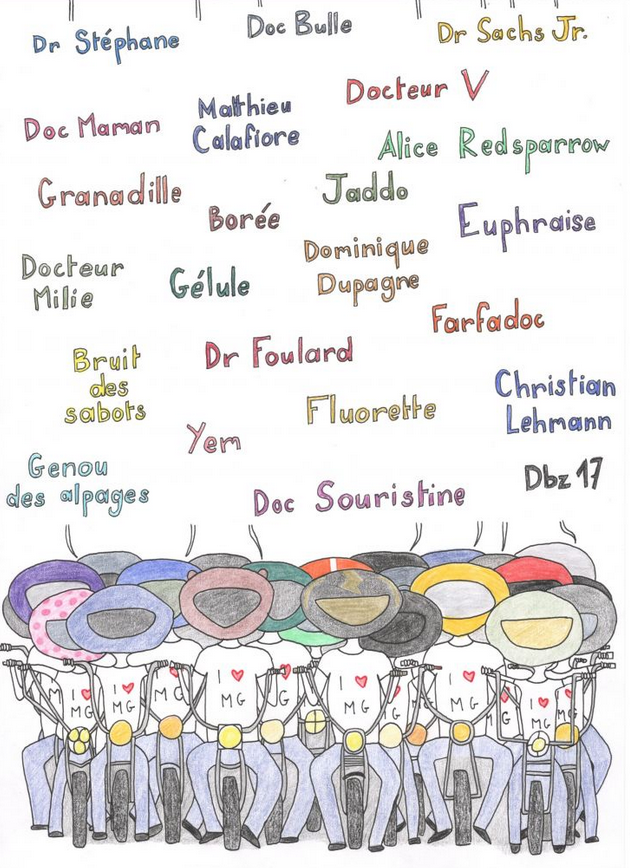 Dr Stéphane
Doc Bulle
Dr Sachs Jr.
Docteur V
Doc Maman
Matthieu
Calafiore
Alice Redsparrow
Granadille
Jaddo
Borée
Euphraise
Docteur
Milie
Gélule
Dominique
Dupagne
Farfadoc
Bruit
des
sabots
Dr Foulard
Christian
Lehmann
Fluorette
Yem
Genou
des alpages
Doc Souristine
Dbz 17
M
I ❤
MG
I ❤
MG
❤
MG
I ❤
MG
❤
G
I ❤
MG
I ❤
MG
MG
I ❤
MG
❤
MG